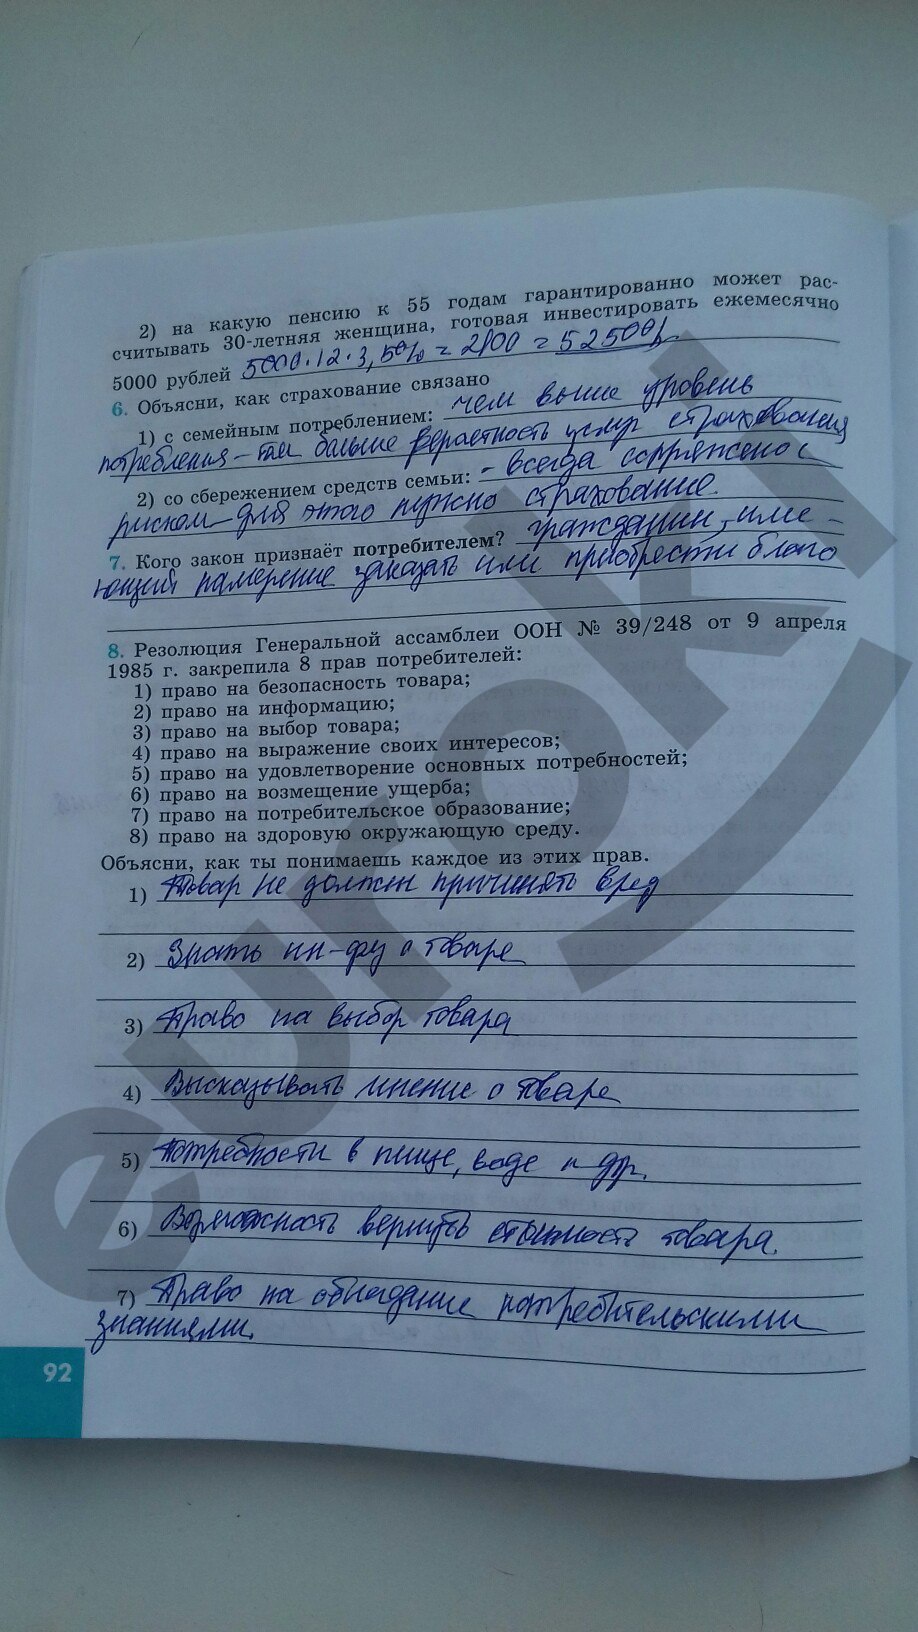 2) на какую пенсию к 55 годам гарантированно может рас-
считывать 30-летняя женщина, готовая инвестировать ежемесячно
5000 рублей 5000·12·3,5% = 2100 = 52500р.
6. Объясни, как страхование связано
1) с семейным потреблением: чем выше уровень
потребления – тем больше вероятность услуг страхования
2) со сбережением средств семьи: - всегда сопряжено с
риском для этого нужно страхование.
7. Кого закон признаёт потребителем? гражданин, име-
ющий намерение заказать или приобрести благо
8. Резолюция Генеральной ассамблеи ООН № 39/248 от 9 апреля
1985 г. закрепила 8 прав потребителей:
1) право на безопасность товара;
2) право на информацию;
3) право на выбор товара;
4) право на выражение своих интересов;
5) право на удовлетворение основных потребностей;
6) право на возмещение ущерба;
7) право на потребительское образование;
8) право на здоровую окружающую среду.
Объясни, как ты понимаешь каждое из этих прав.
1) Товар не должен причинять вред
2) Знать ин-фу о товаре
3) Право на выбор товара
4) Высказывать мнение о товаре
5) Потребности в пище, воде и др.
6) Возможность вернуть стоимость товара.
7) Право на обладание потребительскими
знаниями.
92
euroki